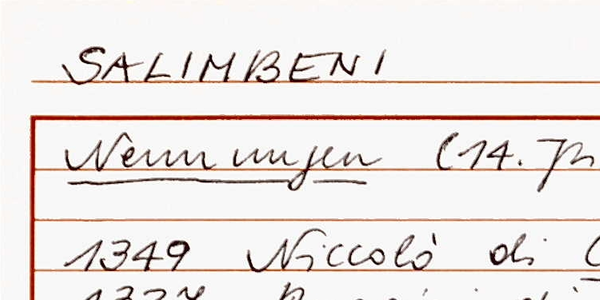 SALIMBENI
Nennungen (14. Jh
1349 Niccolò di